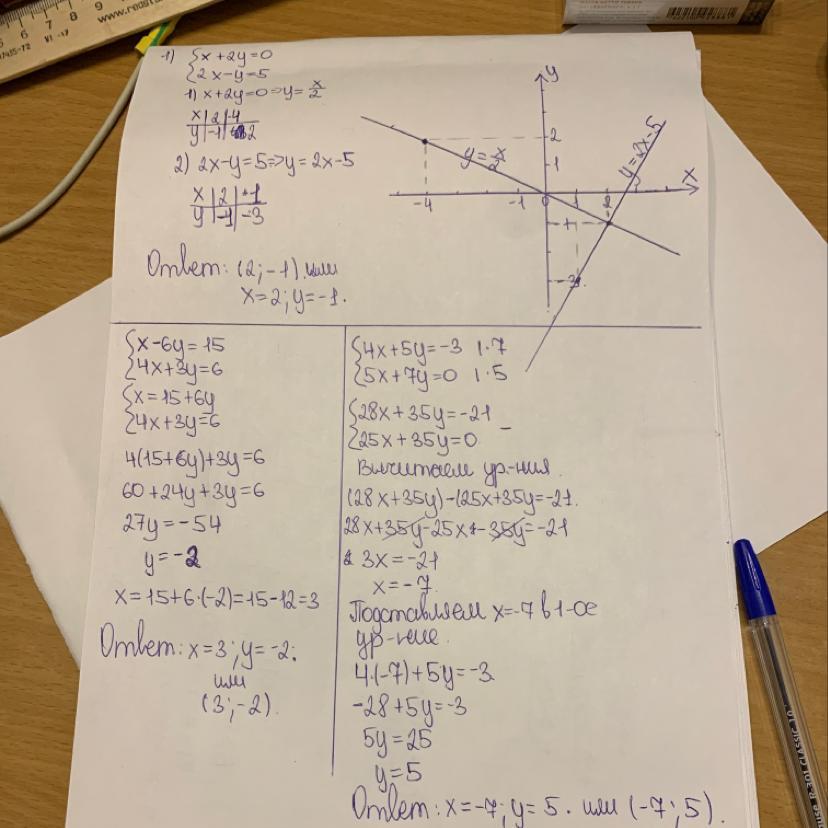 1) {x+2y=0
{2x-y=5
1) x+2y=0 => y= x/2
x | 2 | -4
y | -1 | 2
2) 2x-y=5 => y=2x-5
x | 2 | 1
y | -1 | -3
Ответ: (2;-1) или
x=2; y=-1.
y
2
1
y= x/2
y=2x-5
x
-4
-1
0
1
2
-1
-3
{x-6y=15
{4x+3y=6
{x=15+6y
{4x+3y=6
4(15+6y)+3y=6
60+24y+3y=6
27y=-54
y=-2
x=15+6·(-2)=15-12=3
Ответ: x=3; y=-2.
или
(3;-2).
{4x+5y=-3 |·7
{5x+7y=0 |·5
{28x+35y=-21
{25x+35y=0 -
Вычитаем ур-ния.
(28x+35y)-(25x+35y=-21.
28x+35y-25x-35y=-21
3x=-21
x=-7.
Подставляем x=-7 в 1-ое
ур-ние.
4·(-7)+5y=-3
-28+5y=-3
5y=25
y=5
Ответ: x=-7; y=5. или (-7;5).